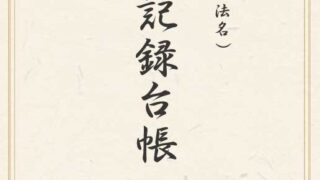 記録台帳
法名）